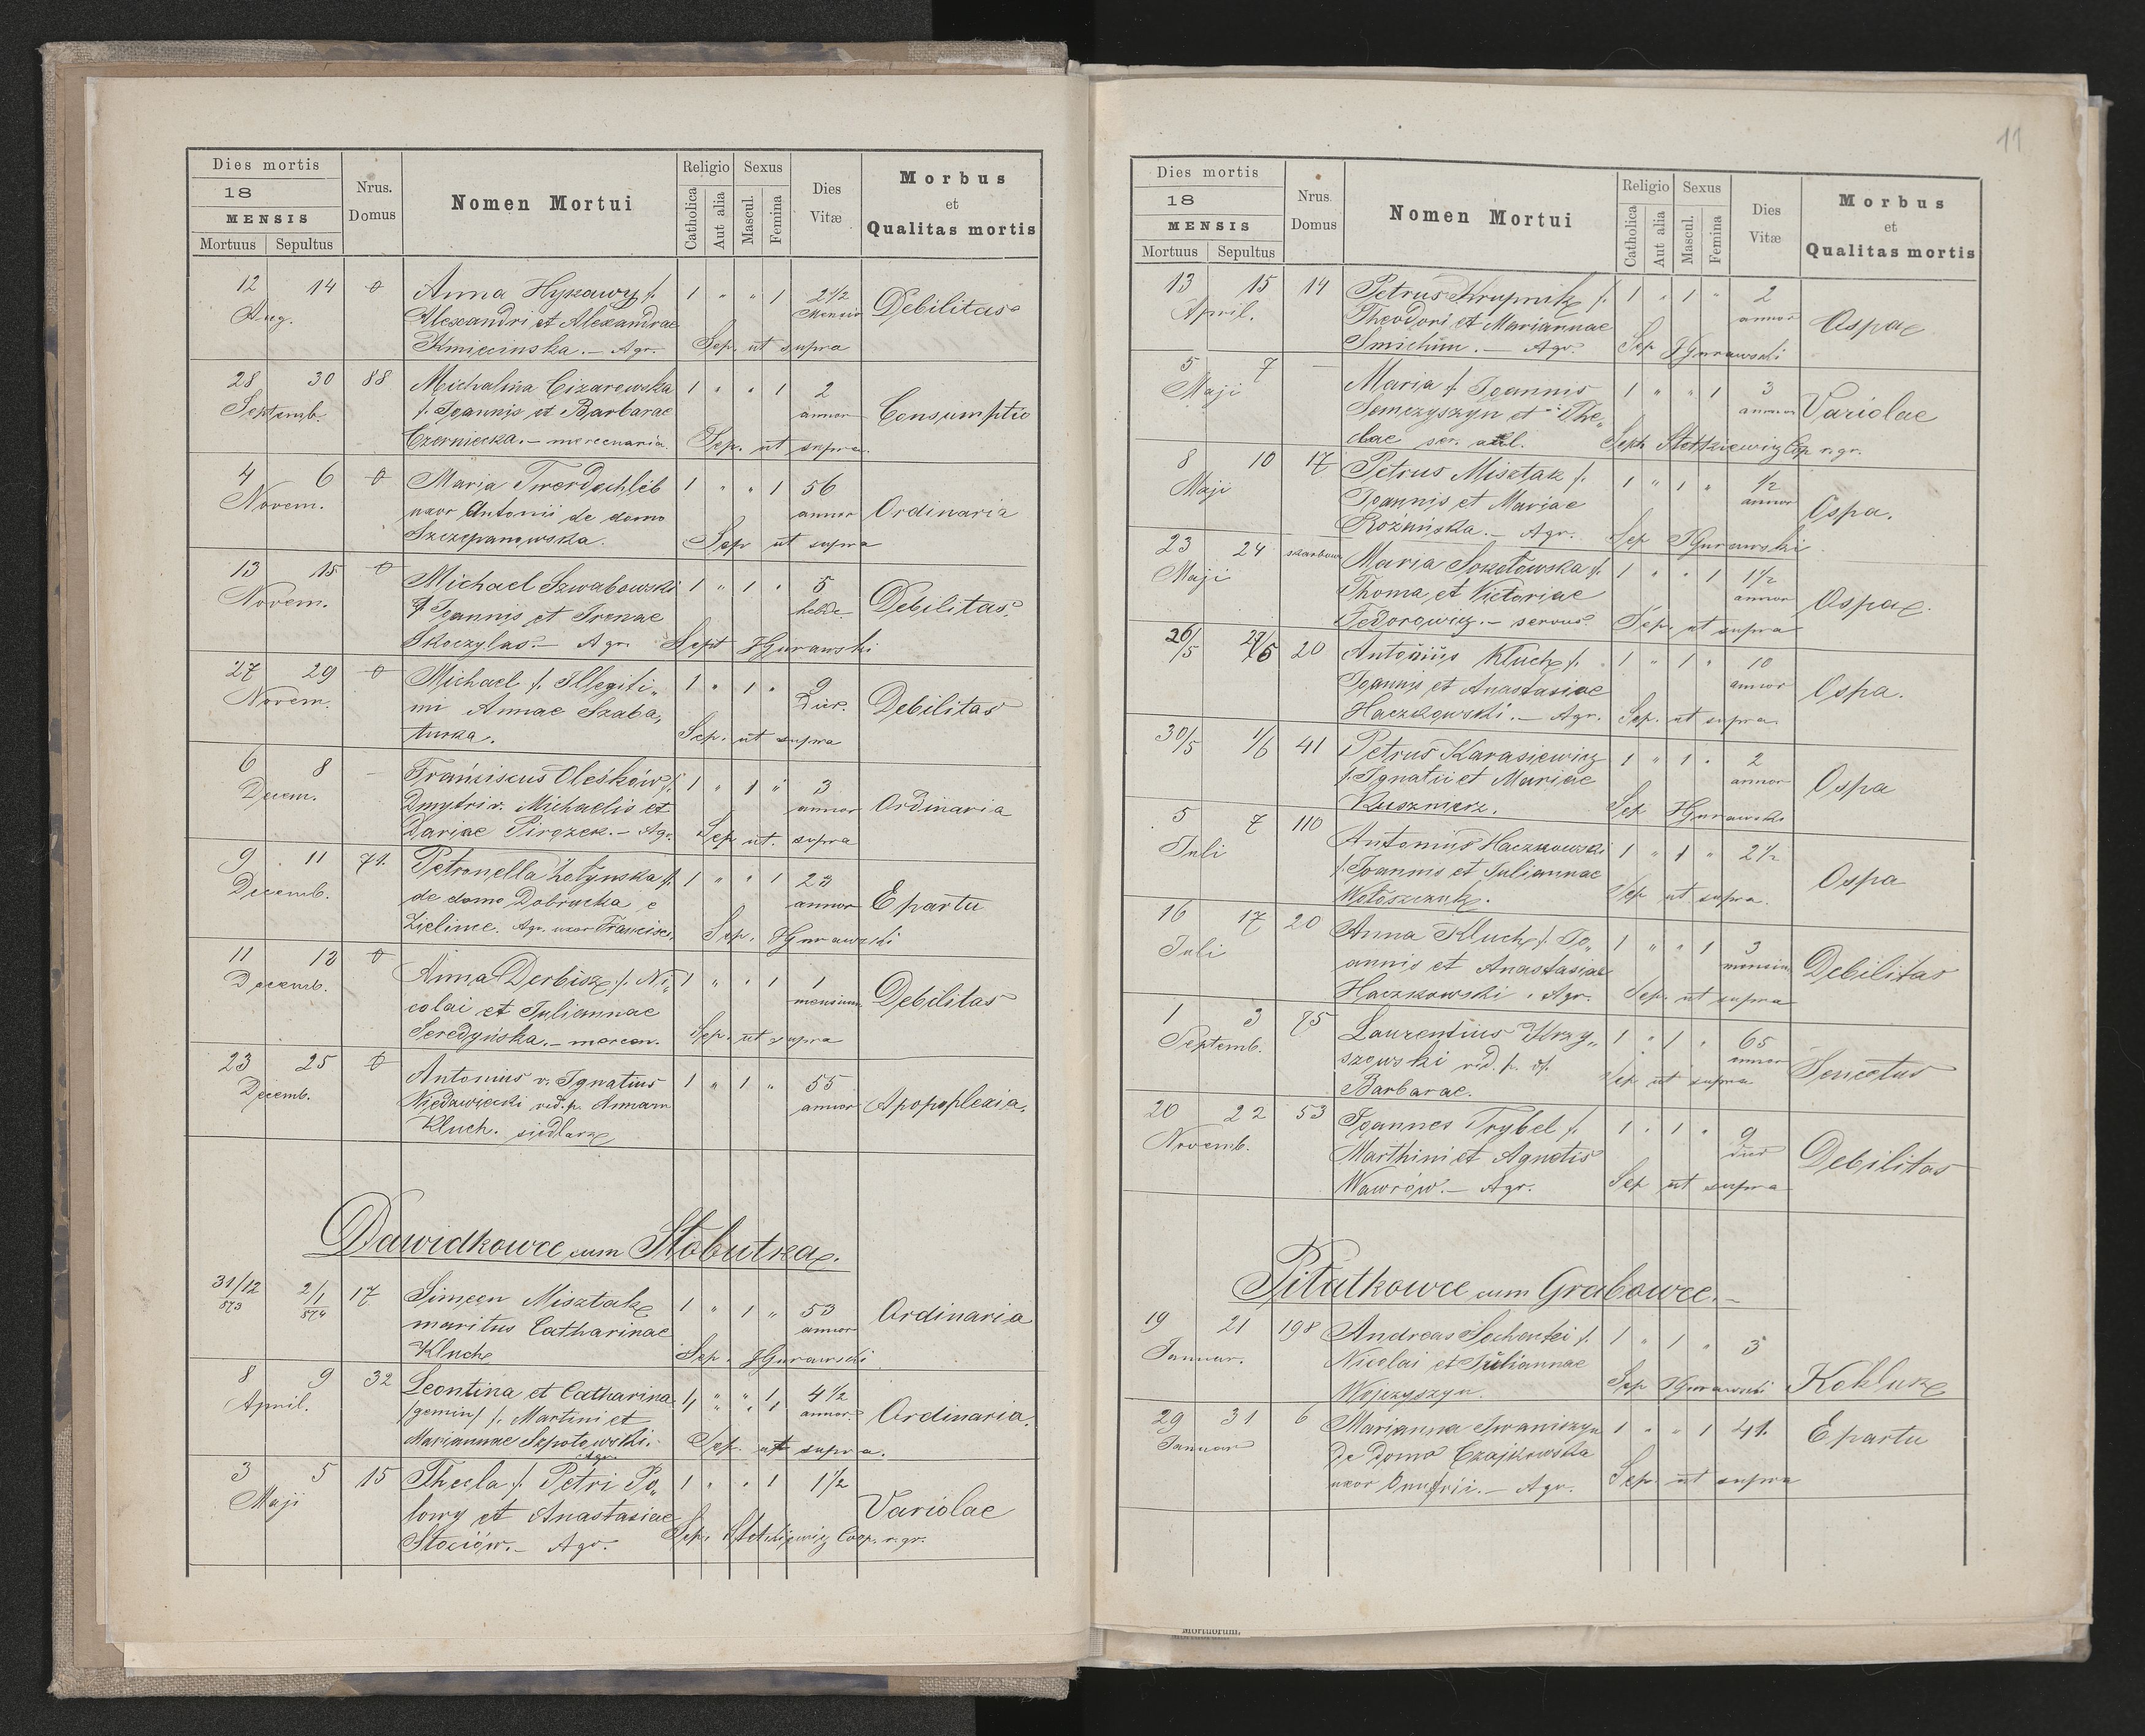 Dies mortis
18
MENSIS
Mortuus Sepultus
Nrus. Domus
Nomen Mortui
Religio
Catholica Aut alia
Sexus
Mascul. Femina
Dies Vitæ
Morbus et Qualitas mortis
12 14 Anna Hyzawy f. 1 " " 1 2 1/2
Aug. Alexandri et Alexandrae Mensis Debilitas
Kmiecinska. — Agr. Sep. ut supra
28 30 88 Michalina Cizarowska 1 " " 1 2
Septemb. f. Joannis et Barbarae annor Consumptio
Czerniecka. — mercenaria. Sep. ut supra.
4 6 Maria Twerdochlib 1 " " 1 56
Novem. uxor Antonii de domo annor Ordinaria
Szczepanowska. Sep ut supra
13 15 Michael Szwabowski 1 " 1 " 5
Novem. f. Joannis et Irenae hebd. Debilitas
Skoczylas. — Agr. Sept HGurawski
27 29 Michael f. Illegiti„ 1 " 1 " 9
Novem. mi Annae Szaba„ Dier. Debilitas
turka. Sep. ut supra
6 8 – Franciscus Oleśków f. 1 " 1 " 3
Decem. Dmytri v. Michaelis et annor Ordinaria
Dariae Pirozek. — Agr. Sep ut. supra
9 11 71. Petronella Zotynska f. 1 " " 1 23
Decemb. de domo Dobrucka e annor E partu
Zielince. Agr. uxor Francisci. Sep. HGurawski
11 13 Anna Derbisz f. Ni„ 1 " " 1 1
Decemb. colai et Juliannae mensium Debilitas
Seredyńska. — mercen. Sep. ut supra
23 25 Antonius v. Ignatius 1 " 1 " 55
Decemb. Niedzwiecki rid. p. Annam annor Apopoplexia.
Kluch. siedlarz
Dawidkowce cum Stobutka.
31/12 873 2/1 874 17 Simeon Misztak 1 " 1 " 53
maritus Catharinae annor Ordinaria
Kluch Sep. HGurawski
8 9 32 Leontina et Catharina 1/1 " " 1/1 4 1/2
April. /gemin/ f. Martini et annor. Ordinaria.
Mariannae Szpotowski. Agr. Sep. ut supra.
3 5 15 Thecla f. Petri Po„ 1 " " 1 1 1/2
Maji lowy et Anastasiae Variolae
Stociów. — Agr. Sep. Coop. r. gr.
11
Dies mortis
18
MENSIS
Mortuus Sepultus
Nrus. Domus
Nomen Mortui
Religio
Catholica Aut alia
Sexus
Mascul. Femina
Dies Vitæ
Morbus et Qualitas mortis
13 15 14 Petrus Krupnik f. 1 " 1 " 2
April. Theodori et Mariannae annor Ospa
Smichun. — Agr. Sep HGurawski
5 7 – Maria f. Joannis 1 " " 1 3
Maji Semczyszyn et The„ annor Variolae
clae ser. aul. Sep. Coop r. gr.
8 10 17 Petrus Misztak f. 1 " 1 " 1/2
Maji Joannis et Mariae annor Ospa.
Rożańska. — Agr. Sep HGurawski
23 24 skarbowy Maria Sokołowska f. 1 " " 1 1 1/2
Maji Thoma, et Victoriae annor Ospa
Fedorowicz. — servus. Sep. ut supra
26/5 27/5 20 Antonius Kluch f. 1 " 1 " 10
Joannis et Anastasiae annor Ospa.
Haczkowski. — Agr. Sep. ut supra.
30/5 1/6 41 Petrus Karasiewicz 1 " 1 " 2
f. Ignatii et Mariae annor Ospa
Kuszmerz. Sep HGurawski
5 7 110 Antonius Haczkowski 1 " 1 " 2 1/2
Juli f. Joannis et Juliannae Ospa
Wołoszczuk. Sep ut supra.
16 17 20 Anna Kluch f. Jo„ 1 " " 1 3
Juli annis et Anastasiae mensium Debilitas
Haczkowski. Agr. Sep. ut supra
1 3 75 Laurentius Krzy„ 1 " 1 " 65
Septemb. szowski rid. p. of. annor Senectus
Barbarae. Sep ut supra
20 22 53 Joannes Trybel f. 1 " 1 " 9
Novemb. Marthini et Agnetis dies Debilitas
Wawrów. — Agr. Sep ut supra
Piłatkowce cum Grabowce. —
19 21 198 Andreas Sochocki f. 1 " 1 " 3
Januar. Nicolai et Juliannae
Wojczyszyn. Sep HGurawski Kokluz
29 31 6 Marianna Iwaniszyn 1 " " 1 41. E partu
Januar de domo Czajkowska
uxor Onufrii. — Agr. Sep. ut supra
Mortuorum.